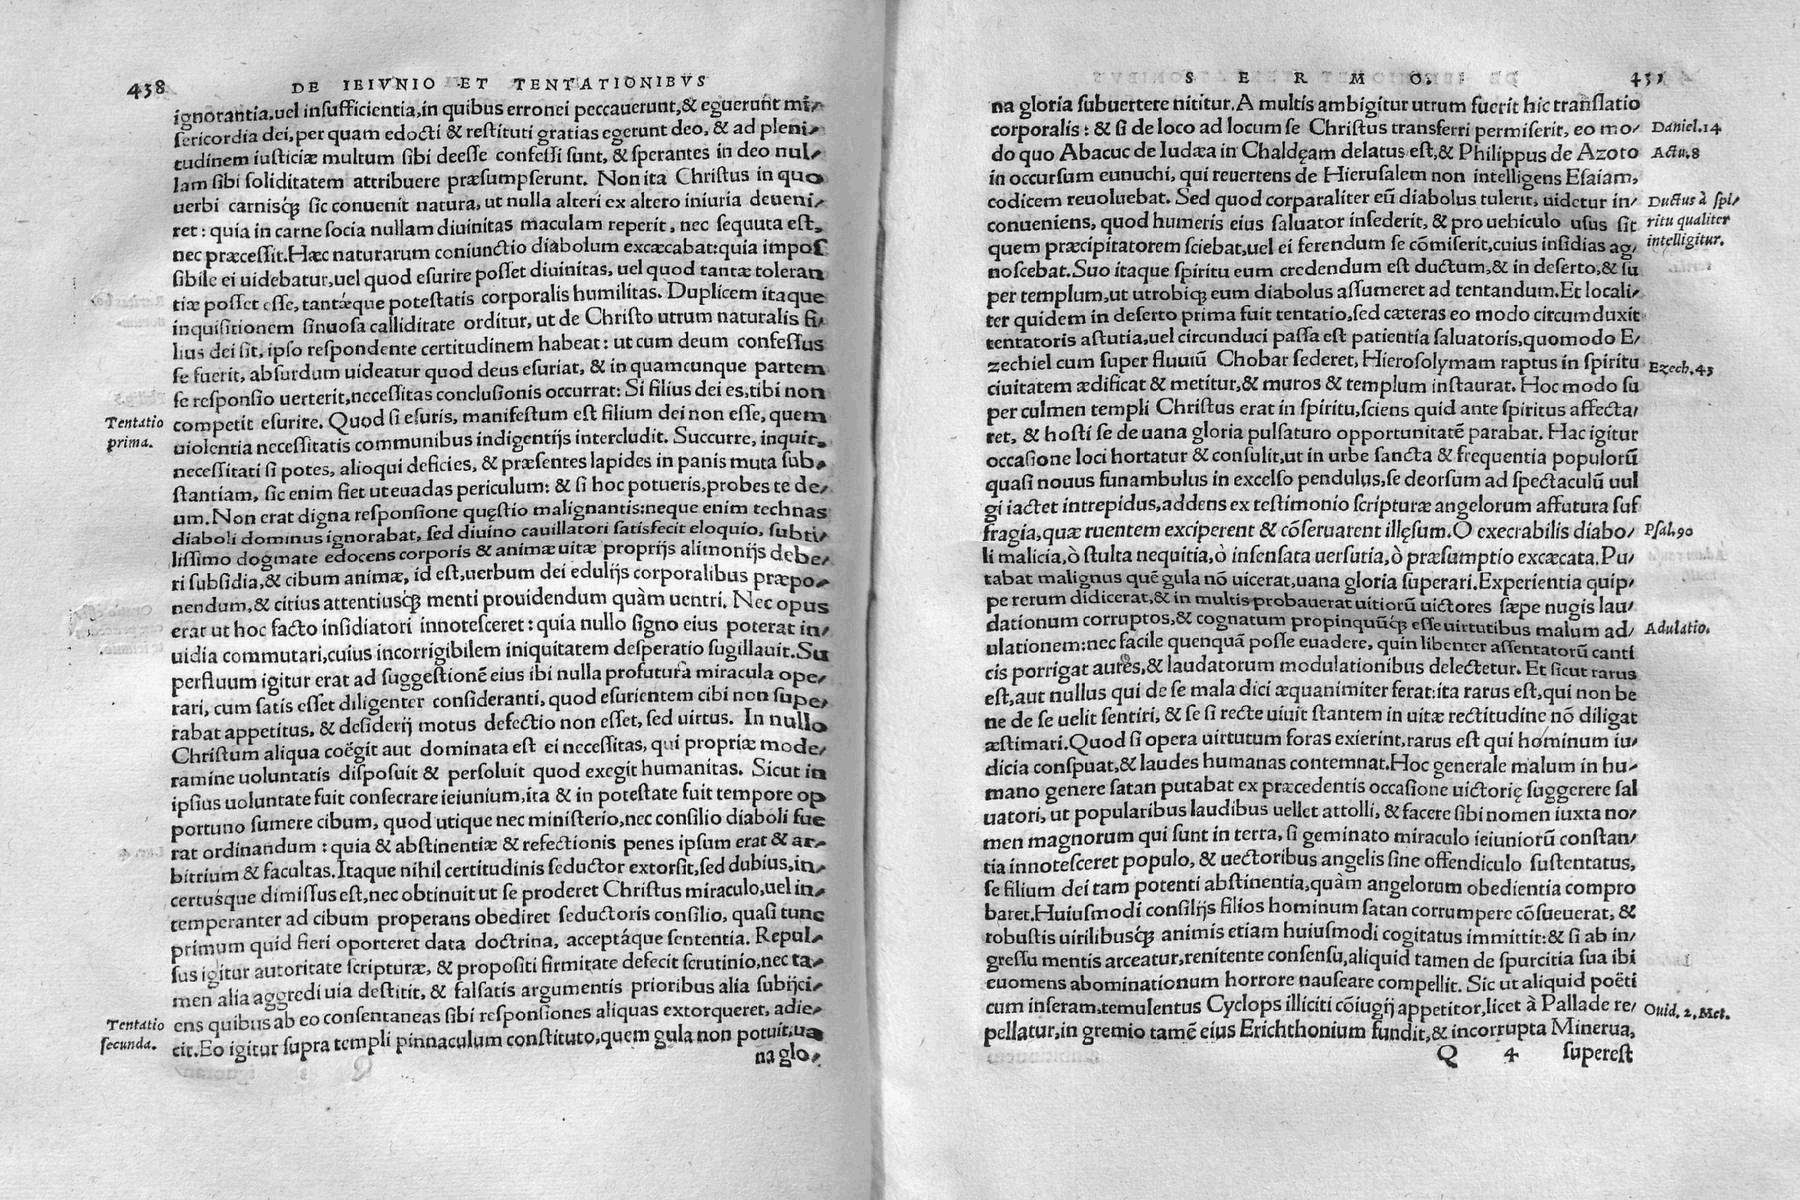 438 DE IEIVNIO ET TENTATIONIBVS
ignorantia, uel insufficientia, in quibus erronei peccauerunt, & eguerunt mi-
sericordia dei, per quam edocti & restituti gratias egerunt deo, & ad pleni-
tudinem iusticiæ multum sibi deesse confessi sunt, & sperantes in deo nul-
lam sibi soliditatem attribuere præsumpserunt. Non ita Christus in quo
uerbi carnisq; sic conuenit natura, ut nulla alteri ex altero iniuria deueni-
ret: quia in carne socia nullam diuinitas maculam reperit, nec sequuta est,
nec præcessit. Hæc naturarum coniunctio diabolum excæcabat: quia impos
sibile ei uidebatur, uel quod esurire posset diuinitas, uel quod tantæ toleran
tiæ posset esse, tantǽque potestatis corporalis humilitas. Duplicem itaque
inquisitionem sinuosa calliditate orditur, ut de Christo utrum naturalis fi-
lius dei sit, ipso respondente certitudinem habeat: ut cum deum confessus
se fuerit, absurdum uideatur quod deus esuriat, & in quamcunque partem
se responsio uerterit, necessitas conclusionis occurrat: Si filius dei es, tibi non
Tentatio prima.
competit esurire. Quod si esuris, manifestum est filium dei non esse, quem
uiolentia necessitatis communibus indigentijs intercludit. Succurre, inquit,
necessitati si potes, alioqui deficies, & præsentes lapides in panis muta sub-
stantiam, sic enim fiet ut euadas periculum: & si hoc potueris, probes te de-
um. Non erat digna responsione quęstio malignantis: neque enim technas
diaboli dominus ignorabat, sed diuino cauillatori satisfecit eloquio, subti-
lissimo dogmate edocens corporis & animæ uitæ proprijs alimonijs debe-
ri subsidia, & cibum animæ, id est, uerbum dei edulijs corporalibus præpo-
nendum, & citius attentiusq; menti prouidendum quàm uentri. Nec opus
erat ut hoc facto insidiatori innotesceret: quia nullo signo eius poterat in-
uidia commutari, cuius incorrigibilem iniquitatem desperatio sugillauit. Su
perfluum igitur erat ad suggestionē eius ibi nulla profutura miracula ope-
rari, cum satis esset diligenter consideranti, quod esurientem cibi non supe-
rabat appetitus, & desiderij motus defectio non esset, sed uirtus. In nullo
Christum aliqua coëgit aut dominata est ei necessitas, qui propriæ mode-
ramine uoluntatis disposuit & persoluit quod exegit humanitas. Sicut in
ipsius uoluntate fuit consecrare ieiunium, ita & in potestate fuit tempore op
portuno sumere cibum, quod utique nec ministerio, nec consilio diaboli fue
rat ordinandum: quia & abstinentiæ & refectionis penes ipsum erat & ar-
bitrium & facultas. Itaque nihil certitudinis seductor extorsit, sed dubius, in-
certúsque dimissus est, nec obtinuit ut se proderet Christus miraculo, uel in-
temperanter ad cibum properans obediret seductoris consilio, quasi tunc
primum quid fieri oporteret data doctrina, acceptáque sententia. Repul-
sus igitur autoritate scripturæ, & propositi firmitate defecit scrutinio, nec ta-
men alia aggredi uia destitit, & falsatis argumentis prioribus alia subijci-
Tentatio secunda.
ens quibus ab eo consentaneas sibi responsiones aliquas extorqueret, adie-
cit. Eo igitur supra templi pinnaculum constituto, quem gula non potuit, ua
na glo-
SERMO. 431
na gloria subuertere nititur. A multis ambigitur utrum fuerit hic translatio
corporalis: & si de loco ad locum se Christus transferri permiserit, eo mo- Daniel. 14
do quo Abacuc de Iudæa in Chaldęam delatus est, & Philippus de Azoto Actu. 8
in occursum eunuchi, qui reuertens de Hierusalem non intelligens Esaiam,
codicem reuoluebat. Sed quod corparaliter eū diabolus tulerit, uidetur in- Ductus à spi-
conueniens, quod humeris eius saluator insederit, & pro uehiculo usus sit ritu qualiter
quem præcipitatorem sciebat, uel ei ferendum se cōmiserit, cuius insidias ag- intelligitur.
noscebat. Suo itaque spiritu eum credendum est ductum, & in deserto, & su
per templum, ut utrobiq; eum diabolus assumeret ad tentandum. Et locali-
ter quidem in deserto prima fuit tentatio, sed cæteras eo modo circumduxit
tentatoris astutia, uel circunduci passa est patientia saluatoris, quomodo E-
zechiel cum super fluuiū Chobar sederet, Hierosolymam raptus in spiritu Ezech. 43
ciuitatem ædificat & metitur, & muros & templum instaurat. Hoc modo su
per culmen templi Christus erat in spiritu, sciens quid ante spiritus affecta-
ret, & hosti se de uana gloria pulsaturo opportunitatē parabat. Hac igitur
occasione loci hortatur & consulit, ut in urbe sancta & frequentia populorū
quasi nouus funambulus in excelso pendulus, se deorsum ad spectaculū uul
gi iactet intrepidus, addens ex testimonio scripturæ angelorum affutura suf
fragia, quæ ruentem exciperent & cōseruarent illęsum. O execrabilis diabo- Psal. 90
li malicia, ò stulta nequitia, ò insensata uersutia, ò præsumptio excæcata. Pu-
tabat malignus quē gula nō uicerat, uana gloria superari. Experientia quip-
pe rerum didicerat, & in multis probauerat uitiorū uictores sæpe nugis lau-
dationum corruptos, & cognatum propinquūq; esse uirtutibus malum ad- Adulatio.
ulationem: nec facile quenquā posse euadere, quin libenter assentatorū canti
cis porrigat aures, & laudatorum modulationibus delectetur. Et sicut rarus
est, aut nullus qui de se mala dici æquanimiter ferat: ita rarus est, qui non be
ne de se uelit sentiri, & se si recte uiuit stantem in uitæ rectitudine nō diligat
æstimari. Quod si opera uirtutum foras exierint, rarus est qui hominum iu-
dicia conspuat, & laudes humanas contemnat. Hoc generale malum in hu-
mano genere satan putabat ex præcedentis occasione uictorię suggerere sal
uatori, ut popularibus laudibus uellet attolli, & facere sibi nomen iuxta no-
men magnorum qui sunt in terra, si geminato miraculo ieiuniorū constan-
tia innotesceret populo, & uectoribus angelis sine offendiculo sustentatus,
se filium dei tam potenti abstinentia, quàm angelorum obedientia compro
baret. Huiusmodi consilijs filios hominum satan corrumpere cōsueuerat, &
robustis uirilibusq; animis etiam huiusmodi cogitatus immittit: & si ab in-
gressu mentis arceatur, renitente consensu, aliquid tamen de spurcitia sua ibi
euomens abominationum horrore nauseare compellit. Sic ut aliquid poëti
cum inseram, temulentus Cyclops illiciti cōiugij appetitor, licet à Pallade re- Ouid. 2. Met.
pellatur, in gremio tamē eius Erichthonium fundit, & incorrupta Minerua,
Q 4 superest